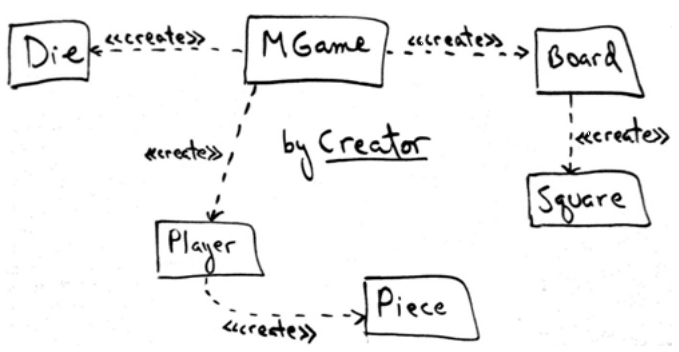 Die
«create»
MGame
«create»
Board
«create»
by Creator
«create»
Square
Player
Piece
«create»